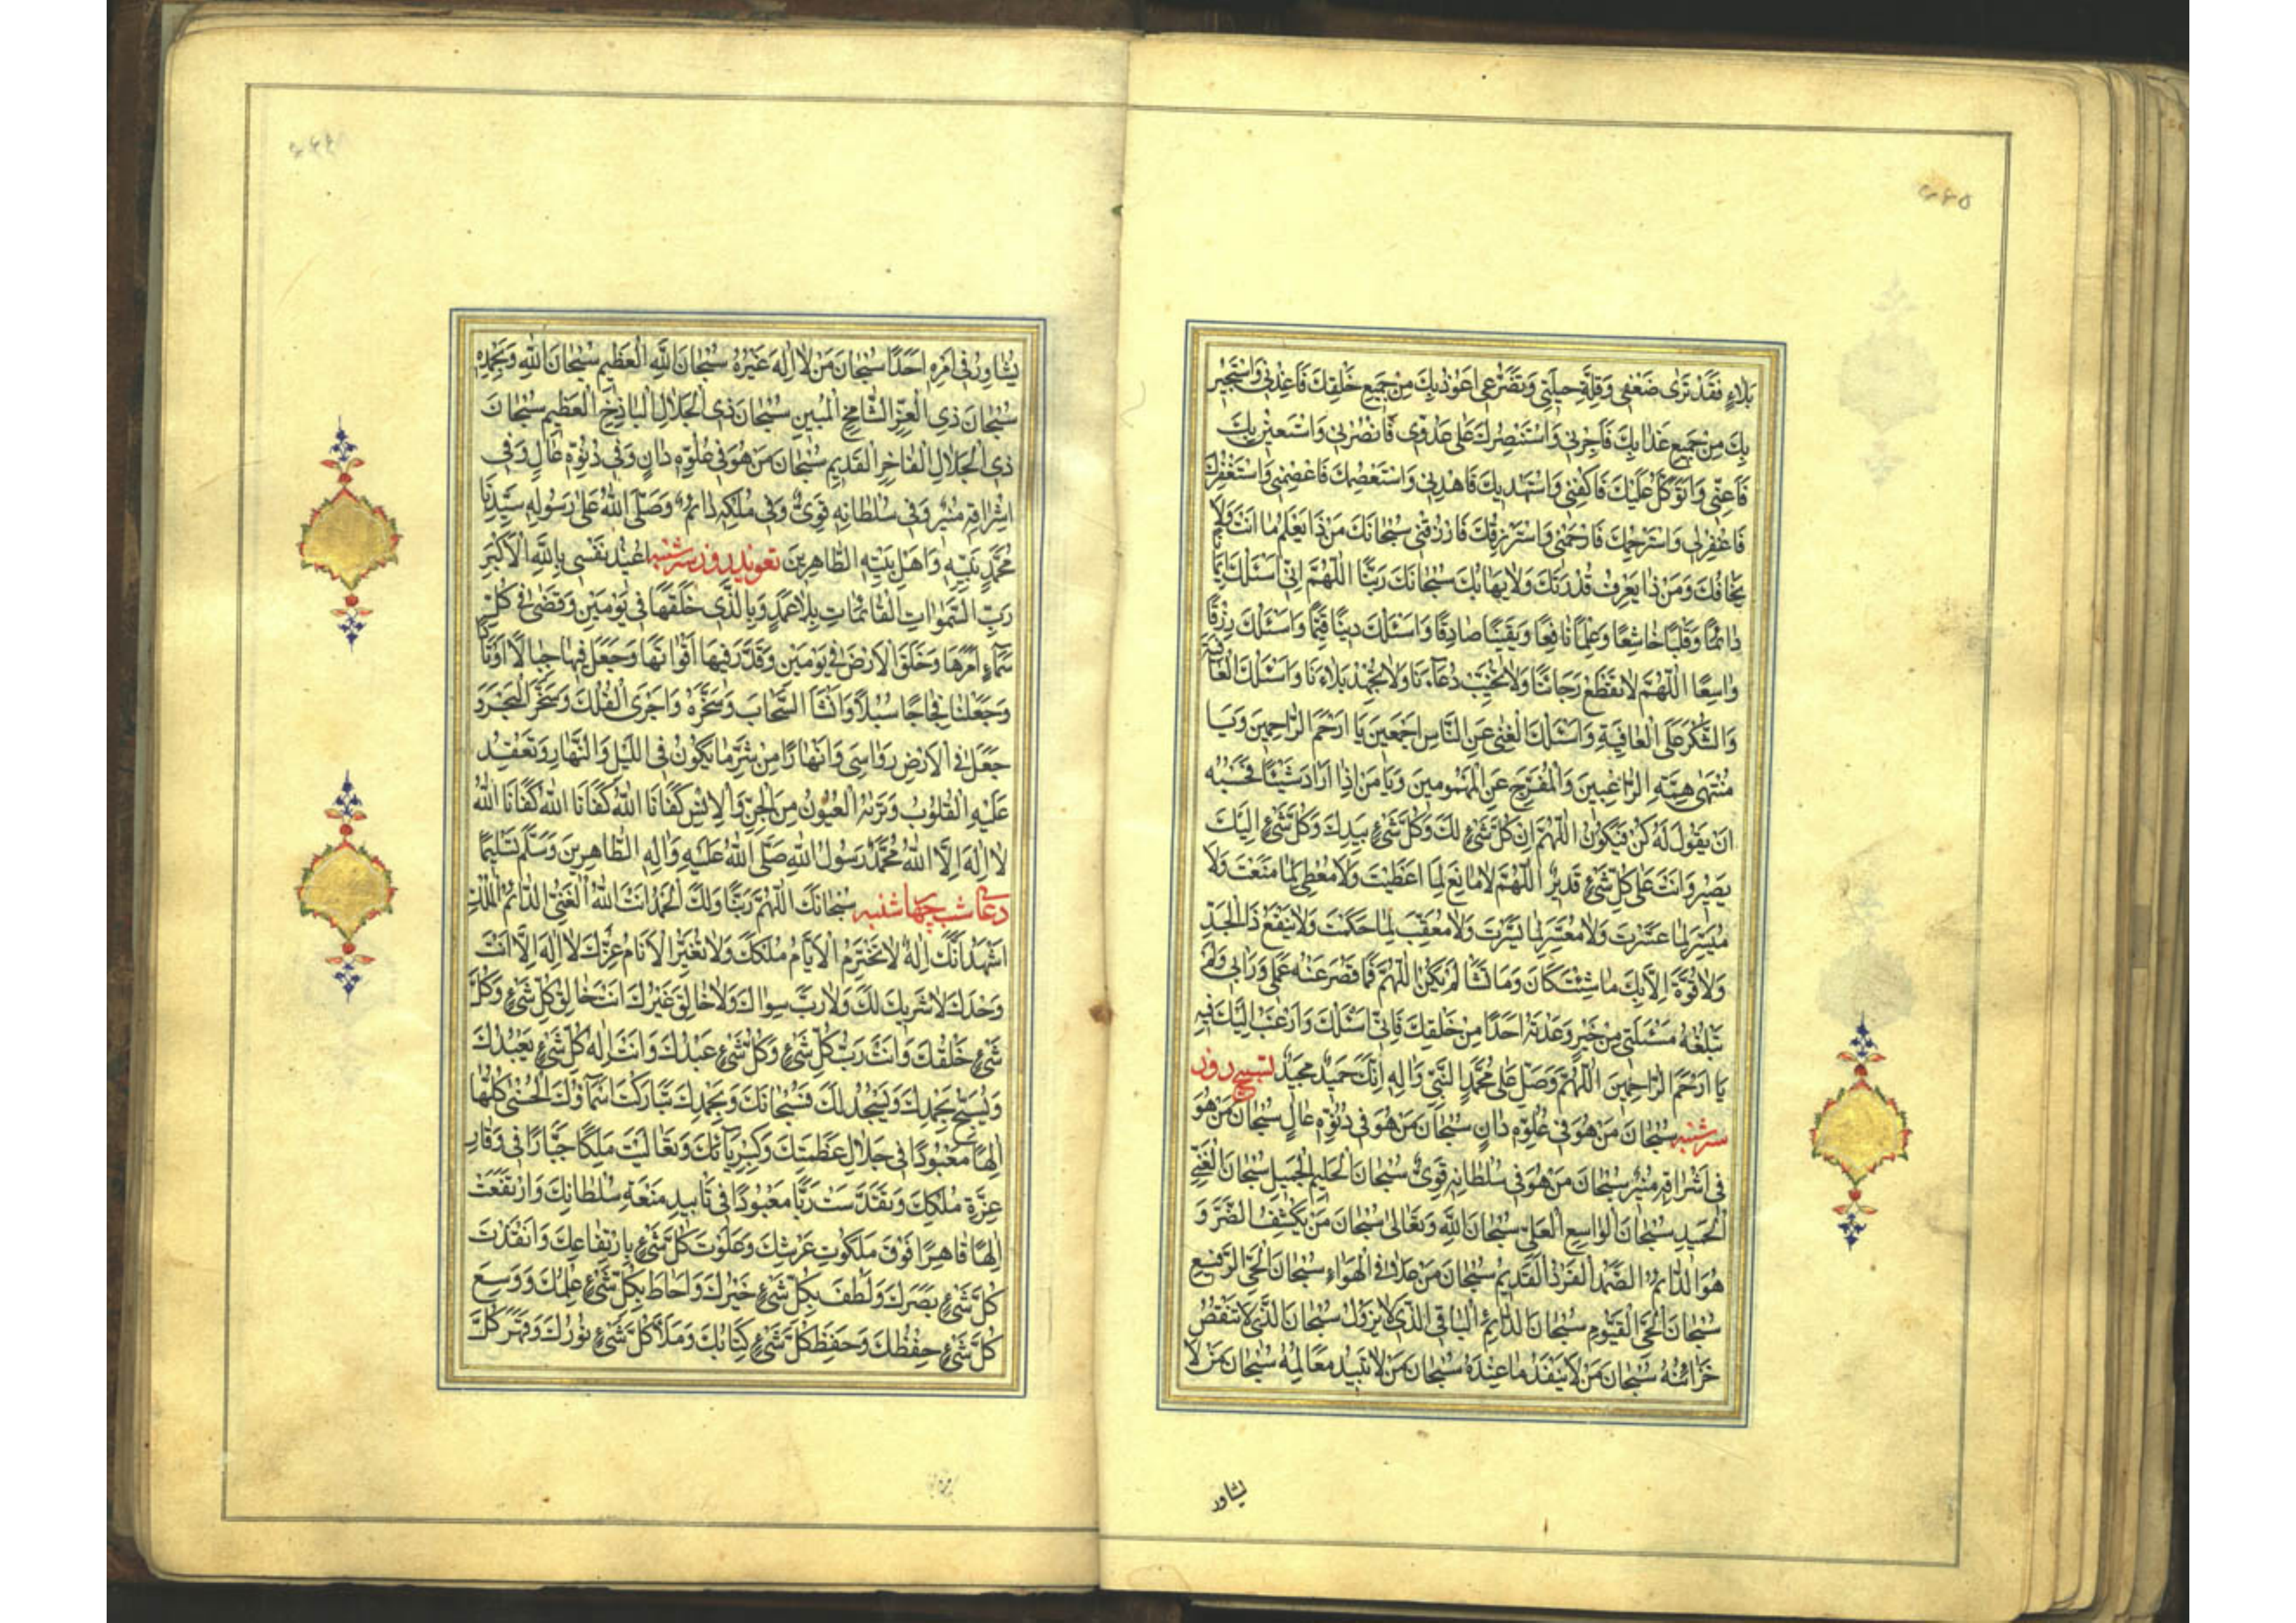 ٥٤٥
بَلَاءٍ فَقَدْ تَرٰى ضَعْفِى وَقِلَّةَ حِيلَتِى وَتَضَرُّعِى اَعُوذُ بِكَ مِنْ جَمِيعِ خَلْقِكَ فَاَعِذْنِى وَاَسْتَجِيرُ
بِكَ مِنْ جَمِيعِ عَذَابِكَ فَاَجِرْنِى وَاَسْتَنْصِرُكَ عَلٰى عَدُوِّى فَانْصُرْنِى وَاَسْتَعِينُ بِكَ
فَاَعِنِّى وَاَتَوَكَّلُ عَلَيْكَ فَاكْفِنِى وَاَسْتَهْدِيكَ فَاهْدِنِى وَاَسْتَعْصِمُكَ فَاعْصِمْنِى وَاَسْتَغْفِرُكَ
فَاغْفِرْلِى وَاَسْتَرْحِمُكَ فَارْحَمْنِى وَاَسْتَرْزِقُكَ فَارْزُقْنِى سُبْحَانَكَ مَنْ ذَا يَعْلَمُ مَا اَنْتَ وَلَا
يَخَافُكَ وَمَنْ ذَا يَعْرِفُ قُدْرَتَكَ وَلَا يَهَابُكَ سُبْحَانَكَ رَبَّنَا اَللّٰهُمَّ اِنِّى اَسْئَلُكَ اِيمَانًا
دَائِمًا وَقَلْبًا خَاشِعًا وَعِلْمًا نَافِعًا وَيَقِينًا صَادِقًا وَاَسْئَلُكَ دِينًا قَيِّمًا وَاَسْئَلُكَ رِزْقًا
وَاسِعًا اَللّٰهُمَّ لَا تَقْطَعْ رَجَاءَنَا وَلَا تُخَيِّبْ دُعَاءَنَا وَلَا تُجْهِدْ بَلَاءَنَا وَاَسْئَلُكَ الْعَافِيَةَ
وَالشُّكْرَ عَلَى الْعَافِيَةِ وَاَسْئَلُكَ الْغِنٰى عَنِ النَّاسِ اَجْمَعِينَ يَا اَرْحَمَ الرَّاحِمِينَ وَيَا
مُنْتَهٰى هِمَّةِ الرَّاغِبِينَ وَالْمُفَرِّجَ عَنِ الْمَهْمُومِينَ وَيَا مَنْ اِذَا اَرَادَ شَيْئًا فَحَسْبُهُ
اَنْ يَقُولَ لَهُ كُنْ فَيَكُونُ اَللّٰهُمَّ اِنَّ كُلَّ شَىْءٍ لَكَ وَكُلَّ شَىْءٍ بِيَدِكَ وَكُلَّ شَىْءٍ اِلَيْكَ
يَصِيرُ وَاَنْتَ عَلٰى كُلِّ شَىْءٍ قَدِيرٌ اَللّٰهُمَّ لَا مَانِعَ لِمَا اَعْطَيْتَ وَلَا مُعْطِىَ لِمَا مَنَعْتَ وَلَا
مُيَسِّرَ لِمَا عَسَّرْتَ وَلَا مُعَسِّرَ لِمَا يَسَّرْتَ وَلَا مُعَقِّبَ لِمَا حَكَمْتَ وَلَا يَنْفَعُ ذَا الْجَدِّ
وَلَا قُوَّةَ اِلَّا بِكَ مَا شِئْتَ كَانَ وَمَا تَشَأْ لَمْ يَكُنْ اَللّٰهُمَّ فَمَا قَصُرَ عَنْهُ عَمَلِى وَرَأْيِى وَلَمْ
تَبْلُغْهُ مَسْئَلَتِى مِنْ خَيْرٍ وَعَدْتَهُ اَحَدًا مِنْ خَلْقِكَ فَاِنِّى اَسْئَلُكَ وَاَرْغَبُ اِلَيْكَ فِيهِ
يَا اَرْحَمَ الرَّاحِمِينَ اَللّٰهُمَّ وَصَلِّ عَلٰى مُحَمَّدٍ النَّبِىِّ وَاٰلِهِ اِنَّكَ حَمِيدٌ مَجِيدٌ تسبیح روز
سه شنبه سُبْحَانَ مَنْ هُوَ فِى عُلُوِّهِ دَانٍ سُبْحَانَ مَنْ هُوَ فِى دُنُوِّهِ عَالٍ سُبْحَانَ مَنْ هُوَ
فِى اِشْرَاقِهِ مُنِيرٌ سُبْحَانَ مَنْ هُوَ فِى سُلْطَانِهِ قَوِىٌّ سُبْحَانَ الْحَلِيمِ الْجَمِيلِ سُبْحَانَ الْغَنِىِّ
الْحَمِيدِ سُبْحَانَ الْوَاسِعِ الْعَلِىِّ سُبْحَانَ اللّٰهِ وَتَعَالٰى سُبْحَانَ مَنْ يَكْشِفُ الضُّرَّ وَ
هُوَ الدَّائِمُ الصَّمَدُ الْفَرْدُ الْقَدِيمُ سُبْحَانَ مَنْ عَلَا فِى الْهَوَاءِ سُبْحَانَ الْحَىِّ الرَّفِيعِ
سُبْحَانَ الْحَىِّ الْقَيُّومِ سُبْحَانَ الدَّائِمِ الْبَاقِى الَّذِى لَا يَزُولُ سُبْحَانَ الَّذِى لَا تَنْقُصُ
خَزَائِنُهُ سُبْحَانَ مَنْ لَا يَنْفَدُ مَا عِنْدَهُ سُبْحَانَ مَنْ لَا تَبِيدُ مَعَالِمُهُ سُبْحَانَ مَنْ لَا
یشاور
يُشَاوِرُ فِى اَمْرِهِ اَحَدًا سُبْحَانَ مَنْ لَا اِلٰهَ غَيْرُهُ سُبْحَانَ اللّٰهِ الْعَظِيمِ سُبْحَانَ اللّٰهِ وَبِحَمْدِهِ
سُبْحَانَ ذِى الْعِزِّ الشَّامِخِ الْمُبِينِ سُبْحَانَ ذِى الْجَلَالِ الْبَاذِخِ الْعَظِيمِ سُبْحَانَ
ذِى الْجَلَالِ الْفَاخِرِ الْقَدِيمِ سُبْحَانَ مَنْ هُوَ فِى عُلُوِّهِ دَانٍ وَفِى دُنُوِّهِ عَالٍ وَفِى
اِشْرَاقِهِ مُنِيرٌ وَفِى سُلْطَانِهِ قَوِىٌّ وَفِى مُلْكِهِ دَائِمٌ وَصَلَّى اللّٰهُ عَلٰى رَسُولِهِ سَيِّدِنَا
مُحَمَّدٍ نَبِيِّهِ وَاَهْلِ بَيْتِهِ الطَّاهِرِينَ تعویذ روز سه شنبه اُعِيذُ نَفْسِى بِاللّٰهِ الْاَكْبَرِ
رَبِّ السَّمٰوَاتِ الْقَائِمَاتِ بِلَا عَمَدٍ وَبِالَّذِى خَلَقَهَا فِى يَوْمَيْنِ وَقَضٰى فِى كُلِّ
سَمَاءٍ اَمْرَهَا وَخَلَقَ الْاَرْضَ فِى يَوْمَيْنِ وَقَدَّرَ فِيهَا اَقْوَاتَهَا وَجَعَلَ فِيهَا جِبَالًا اَوْتَادًا
وَجَعَلَهَا فِجَاجًا سُبُلًا وَاَنْشَاَ السَّحَابَ وَسَخَّرَهُ وَاَجْرَى الْفُلْكَ وَسَخَّرَ الْبَحْرَ وَ
جَعَلَ فِى الْاَرْضِ رَوَاسِىَ وَاَنْهَارًا مِنْ شَرِّ مَا يَكُونُ فِى اللَّيْلِ وَالنَّهَارِ وَتَعْقِدُ
عَلَيْهِ الْقُلُوبُ وَتَرَاهُ الْعُيُونُ مِنَ الْجِنِّ وَالْاِنْسِ كَفَانَا اللّٰهُ كَفَانَا اللّٰهُ كَفَانَا اللّٰهُ
لَا اِلٰهَ اِلَّا اللّٰهُ مُحَمَّدٌ رَسُولُ اللّٰهِ صَلَّى اللّٰهُ عَلَيْهِ وَاٰلِهِ الطَّاهِرِينَ وَسَلَّمَ تَسْلِيمًا
دعای شب چهارشنبه سُبْحَانَكَ اللّٰهُمَّ رَبَّنَا وَلَكَ الْحَمْدُ اَنْتَ اللّٰهُ الْغَنِىُّ الدَّائِمُ الْمَلِكُ
اَشْهَدُ اَنَّكَ اِلٰهٌ لَا تَخْتَرِمُ الْاَيَّامُ مُلْكَكَ وَلَا تُغَيِّرُ الْاَنَامُ عِزَّكَ لَا اِلٰهَ اِلَّا اَنْتَ
وَحْدَكَ لَا شَرِيكَ لَكَ وَلَا رَبَّ سِوَاكَ وَلَا خَالِقَ غَيْرُكَ اَنْتَ خَالِقُ كُلِّ شَىْءٍ وَكُلُّ
شَىْءٍ خَلْقُكَ وَاَنْتَ رَبُّ كُلِّ شَىْءٍ وَكُلُّ شَىْءٍ عَبْدُكَ وَاَنْتَ اِلٰهُ كُلِّ شَىْءٍ يَعْبُدُكَ
وَيُسَبِّحُ بِحَمْدِكَ وَيَسْجُدُ لَكَ فَسُبْحَانَكَ وَبِحَمْدِكَ تَبَارَكَتْ اَسْمَاؤُكَ الْحُسْنٰى كُلُّهَا
اِلٰهًا مَعْبُودًا فِى جَلَالِ عَظَمَتِكَ وَكِبْرِيَائِكَ وَتَعَالَيْتَ مَلِكًا جَبَّارًا فِى وَقَارِ
عِزَّةِ مُلْكِكَ وَتَقَدَّسْتَ رَبًّا مَعْبُودًا فِى تَاْيِيدِ مَنَعَةِ سُلْطَانِكَ وَارْتَفَعْتَ
اِلٰهًا قَاهِرًا فَوْقَ مَلَكُوتِ عَرْشِكَ وَعَلَوْتَ كُلَّ شَىْءٍ بِارْتِفَاعِكَ وَاَنْفَذْتَ
كُلَّ شَىْءٍ بَصَرَكَ وَلَطُفَ بِكُلِّ شَىْءٍ خُبْرُكَ وَاَحَاطَ بِكُلِّ شَىْءٍ عِلْمُكَ وَوَسِعَ
كُلَّ شَىْءٍ حِفْظُكَ وَحَفِظَ كُلَّ شَىْءٍ كِتَابُكَ وَمَلَاَ كُلَّ شَىْءٍ نُورُكَ وَقَهَرَ كُلَّ